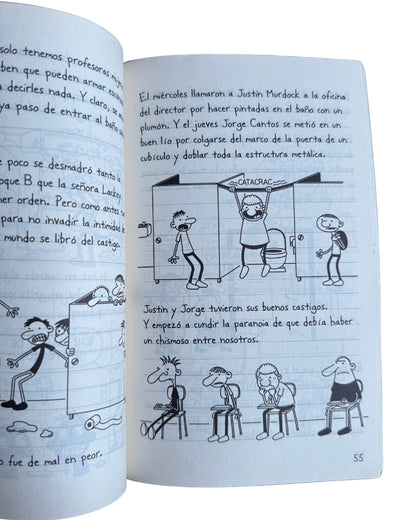 solo tenemos profesoras
ben que pueden armar
a decirles nada. Y claro,
ya paso de entrar al baño
e poco se desmadró tanto la
oque B que la señora
ner orden. Pero como antes
para no invadir la intimidad
mundo se libró del castigo.
o fue de mal en peor.
El miércoles llamaron a Justin Murdock a la oficina
del director por hacer pintadas en el baño con un
plumón. Y el jueves Jorge Cantos se metió en un
buen lío por colgarse del marco de la puerta de un
cubículo y doblar toda la estructura metálica.
CATACRAC
Justin y Jorge tuvieron sus buenos castigos.
Y empezó a cundir la paranoia de que debía haber
un chismoso entre nosotros.
55